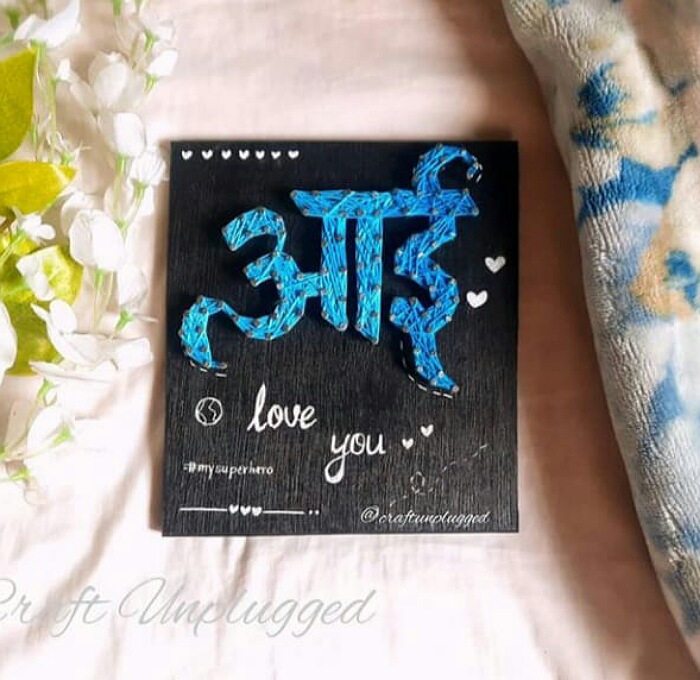 आई
love
you
#mysuperhero
@craftunplugged
Craft Unplugged